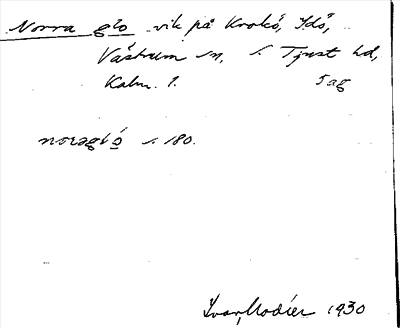 Norra glo vik på Krokö, Idö,
Västrum sn, S. Tjust hd,
Kalm. l. 5ag
noragló s. 180.
Ivar Modéer 1930